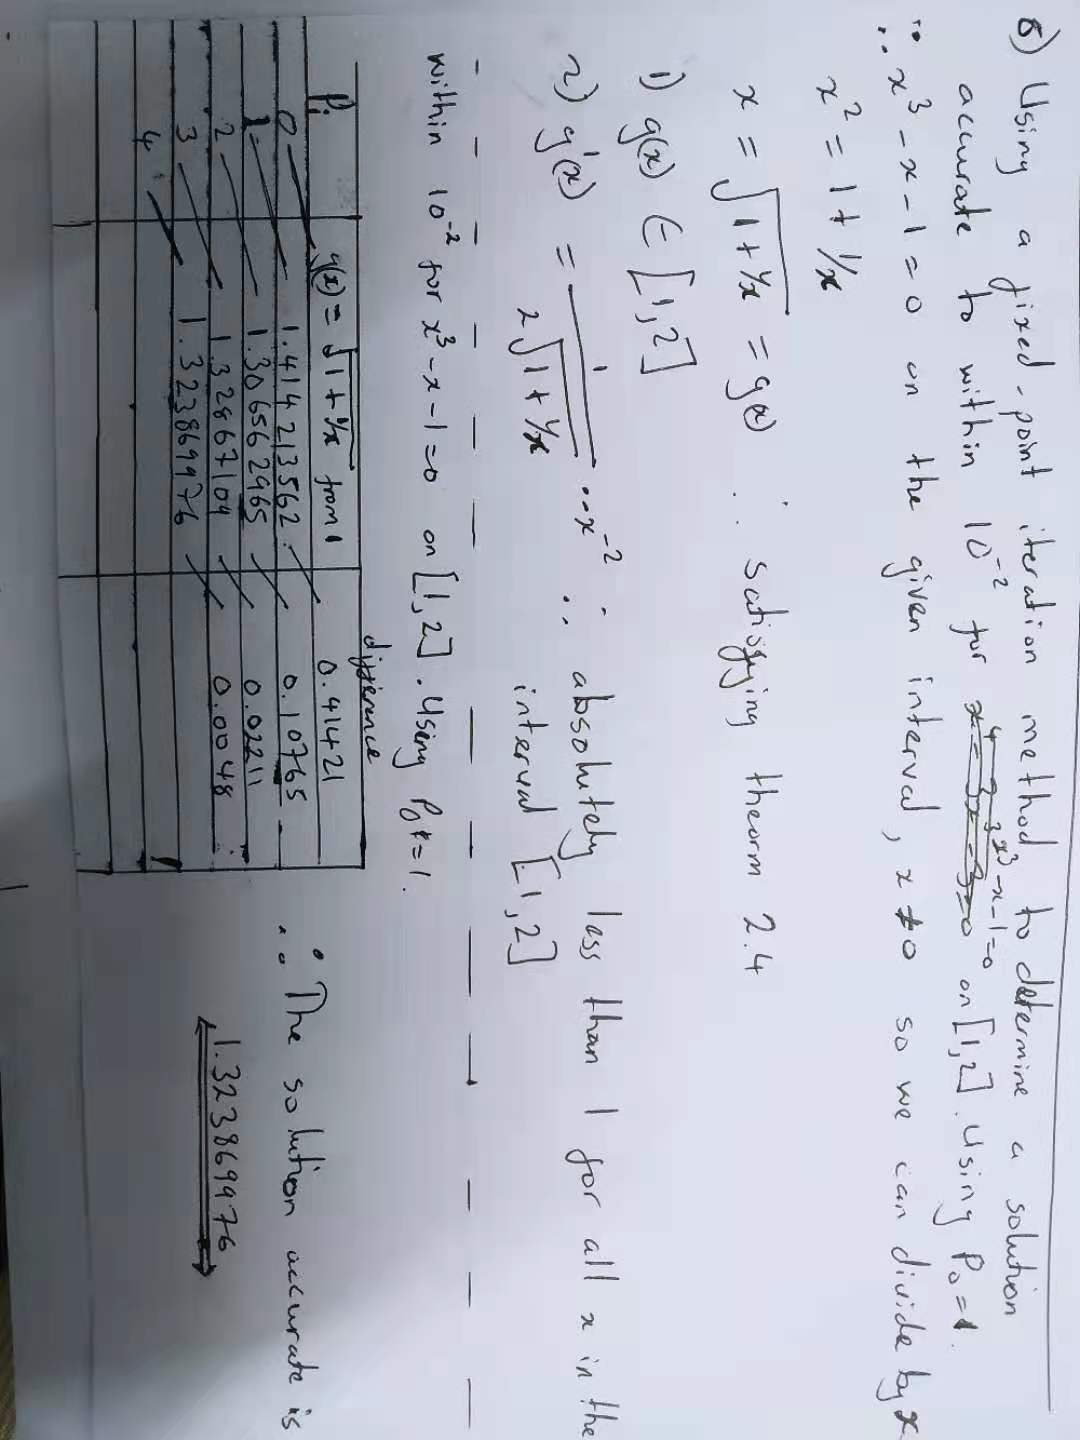 8) Using a fixed-point iteration method to determine a solution
accurate to within 10⁻² for x³-x-1=0 on [1,2]. Using P₀=1.
∵ x³-x-1=0 on the given interval, x≠0 so we can divide by x
x² = 1+ 1/x
x = √(1+1/x) = g(x) ∴ satisfying theorm 2.4
1) g(x) ∈ [1,2]
2) g'(x) = 1/(2√(1+1/x)) · -x⁻² ∴ absolutely less than 1 for all x in the
interval [1,2]
within 10⁻² for x³-x-1=0 on [1,2]. Using P₀=1.
Pᵢ g(x) = √(1+1/x) from 1 difference
0 1.414213562 0.41421
1 1.306562965 0.10765
2 1.32867104 0.02211
3 1.323869976 0.0048
4
∴ The solution accurate is
1.323869976